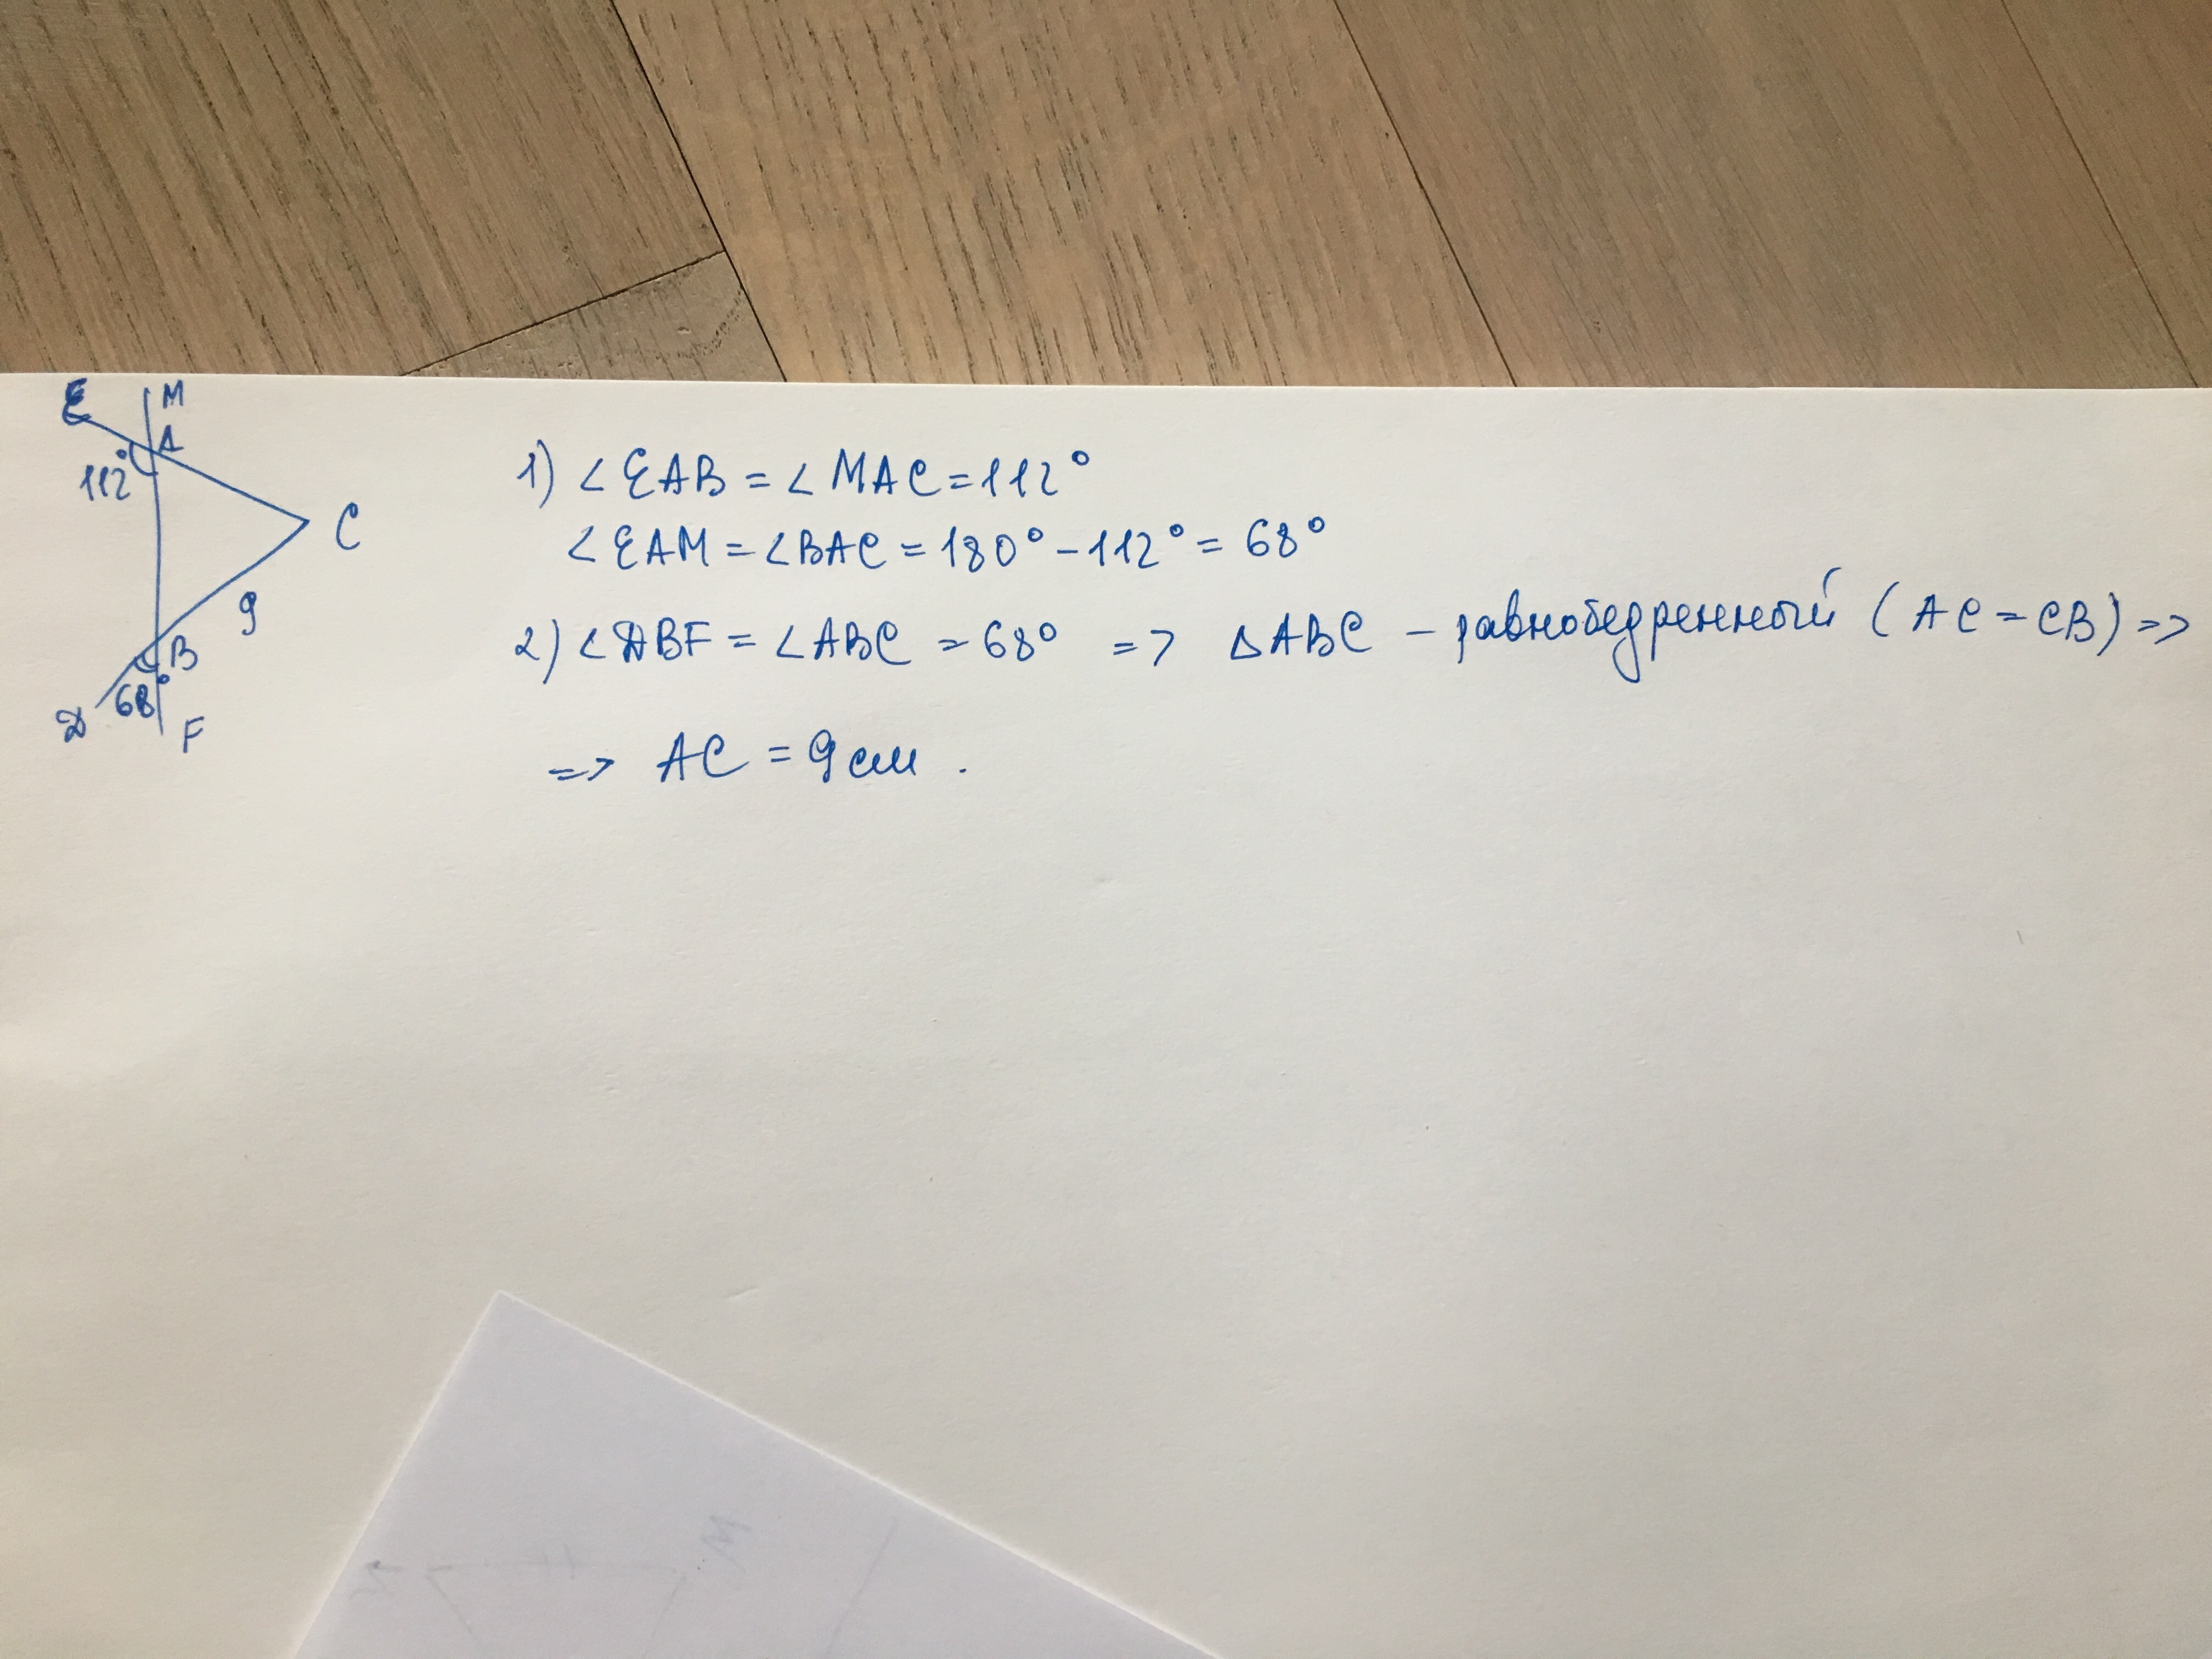 E
M
A
112°
C
9
B
68°
D
F
1) ∠EAB = ∠MAC = 112°
∠EAM = ∠BAC = 180° - 112° = 68°
2) ∠DBF = ∠ABC = 68° => △ABC - равнобедренный (AC = CB) =>
=> AC = 9 см.